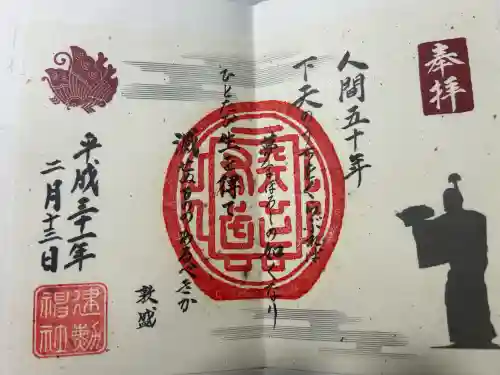 奉拝
人間五十年
下天のうちをくらぶれば
夢まぼろしの如くなり
ひとたび生を得て
滅せぬもののあるべきか
敦盛
平成三十一年
二月十三日
建勲
神社